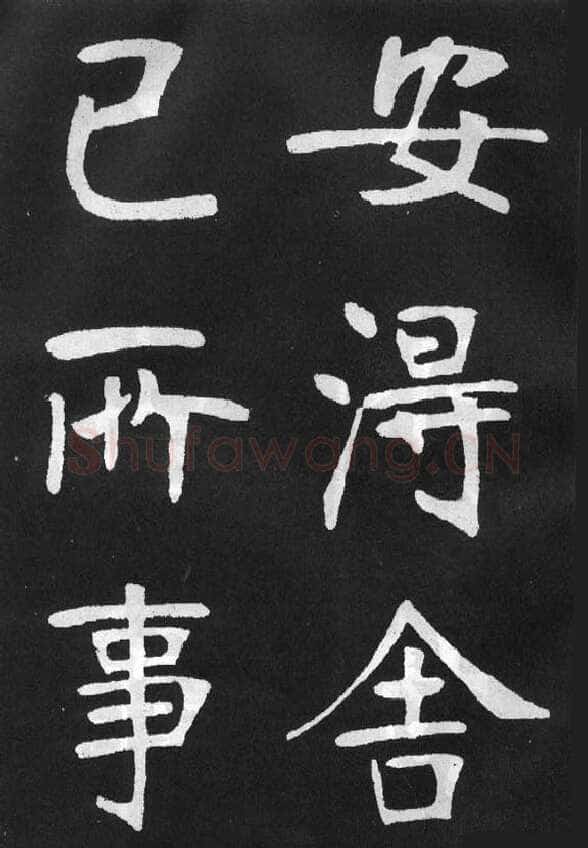 安淂舍
已所事
Shufawang.CN